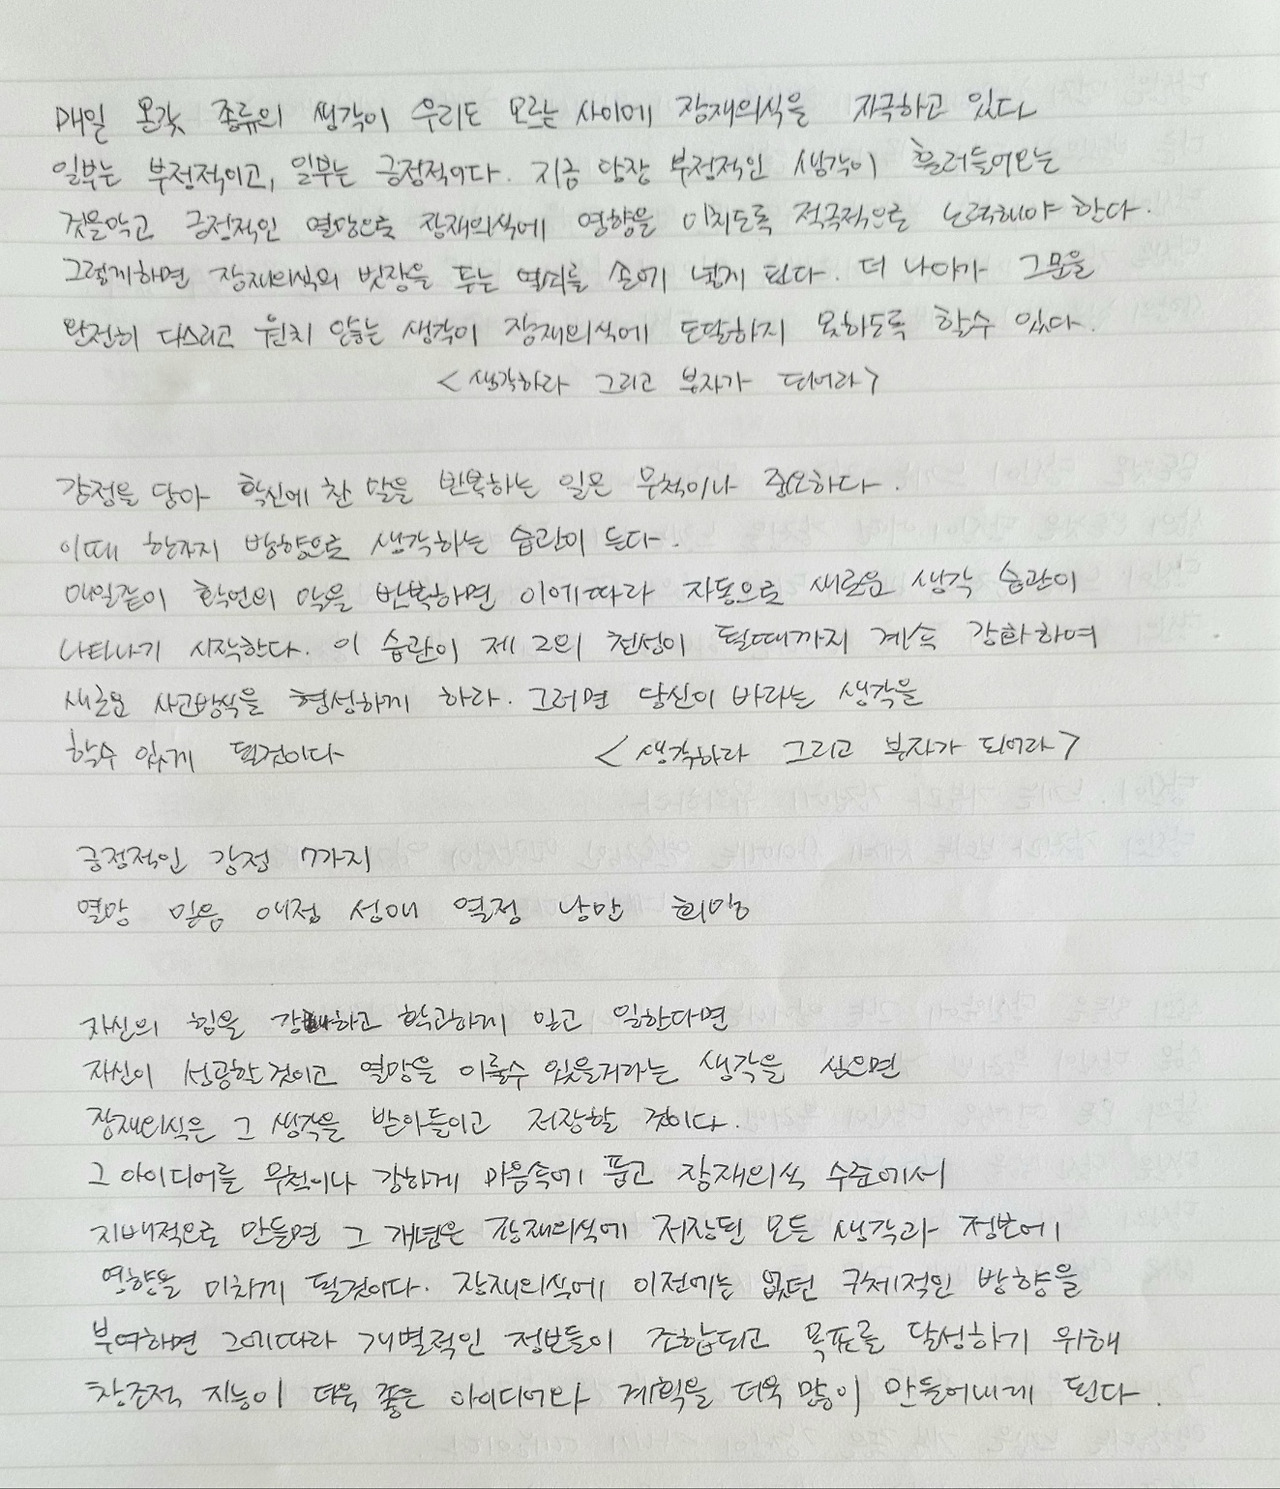 매일 온갖 종류의 생각이 우리도 모르는 사이에 잠재의식을 자극하고 있다
일부는 부정적이고, 일부는 긍정적이다. 지금 당장 부정적인 생각이 흘러들어오는
것을막고 긍정적인 열망으로 잠재의식에 영향을 미치도록 적극적으로 노력해야 한다.
그렇게하면 잠재의식의 빗장을 푸는 열쇠를 손에 넣게 된다. 더 나아가 그문을
완전히 다스리고 원치 않는 생각이 잠재의식에 도달하지 못하도록 할수 있다.
<생각하라 그리고 부자가 되어라>
감정을 담아 확신에 찬 말을 반복하는 일은 무척이나 중요하다.
이때 한가지 방향으로 생각하는 습관이 든다.
매일같이 확언의 말을 반복하면 이에따라 자동으로 새로운 생각 습관이
나타나기 시작한다. 이 습관이 제 2의 천성이 될때까지 계속 강화하여
새로운 사고방식을 형성하게 하라. 그러면 당신이 바라는 생각을
할수 있게 될것이다 <생각하라 그리고 부자가 되어라>
긍정적인 감정 7가지
열망 믿음 애정 성애 열정 낭만 희망
자신의 힘을 강하고 확고하게 믿고 원한다면
자신이 성공할것이고 열망을 이룰수 있을거라는 생각을 심으면
잠재의식은 그 생각을 받아들이고 저장할 것이다.
그 아이디어를 무척이나 강하게 마음속에 품고 잠재의식 수준에서
지배적으로 만들면 그 개념은 잠재의식에 저장된 모든 생각과 정보에
영향을 미치게 될것이다. 잠재의식에 이전에는 없던 구체적인 방향을
부여하면 그에따라 개별적인 정보들이 조합되고 목표를 달성하기 위해
창조적 지능이 더욱 좋은 아이디어와 계획을 더욱 많이 만들어내게 된다.